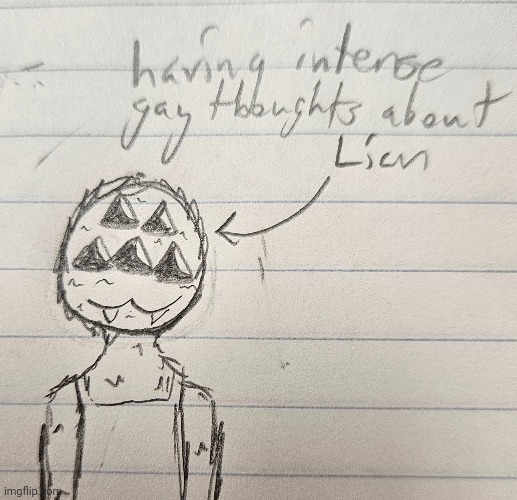 having intense
gay thoughts about
Lien
imgflip.com